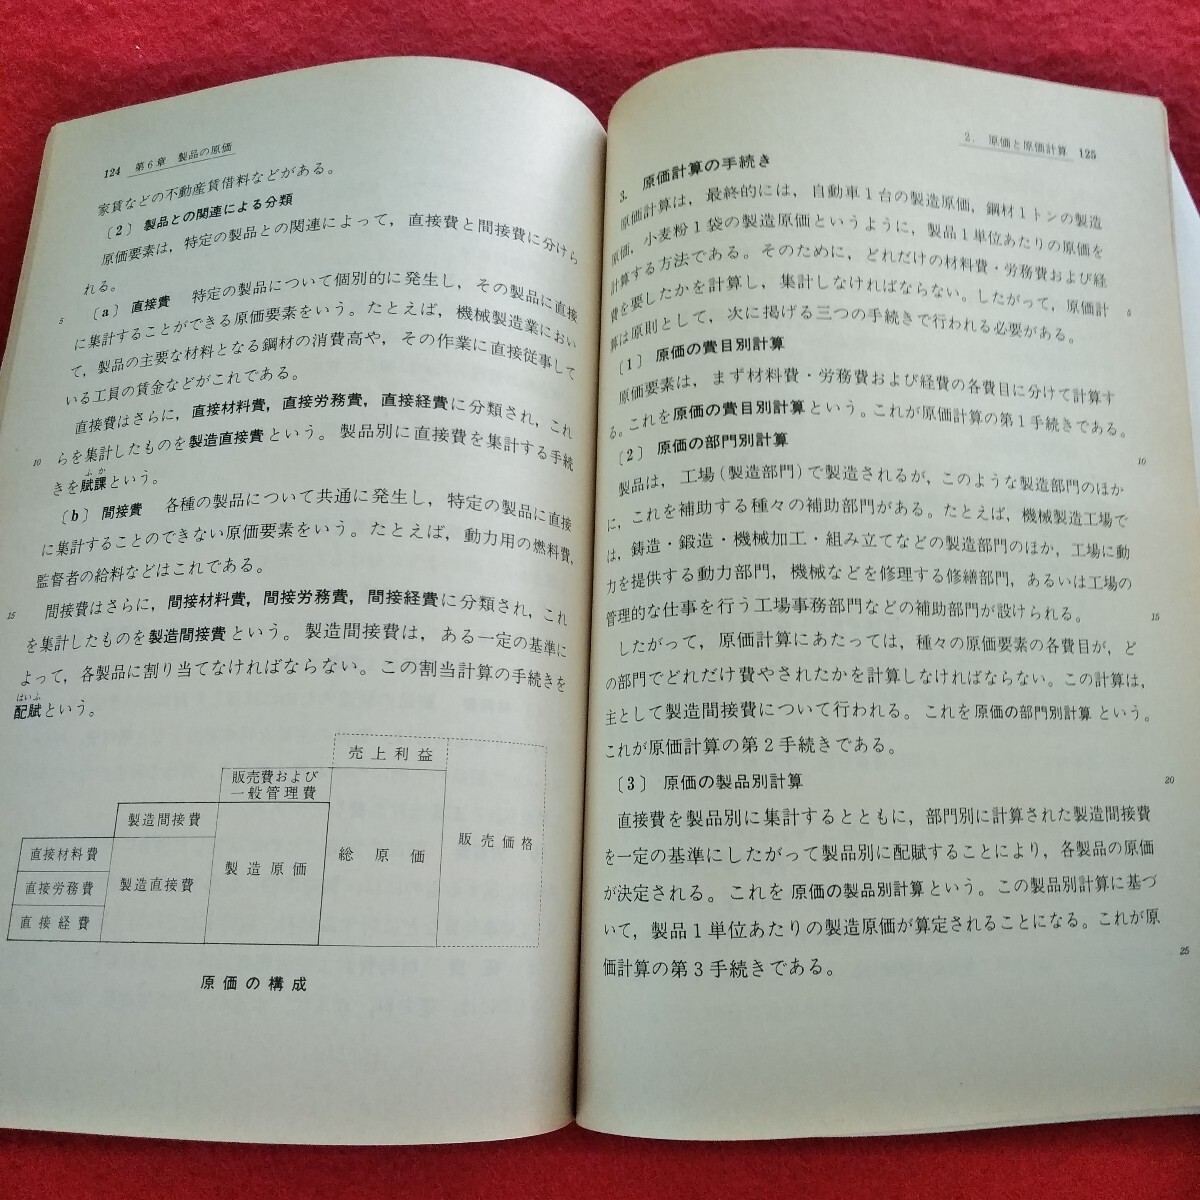 124 第6章 製品の原価
家賃などの不動産賃借料などがある。
〔2〕 製品との関連による分類
原価要素は，特定の製品との関連によって，直接費と間接費に分けら
れる。
5
〔a〕 直接費 特定の製品について個別的に発生し，その製品に直接
に集計することができる原価要素をいう。たとえば，機械製造業におい
て，製品の主要な材料となる鋼材の消費高や，その作業に直接従事して
いる工員の賃金などがこれである。
直接費はさらに，直接材料費，直接労務費，直接経費に分類され，これ
10
らを集計したものを製造直接費という。製品別に直接費を集計する手続
ふか
きを賦課という。
〔b〕 間接費 各種の製品について共通に発生し，特定の製品に直接
に集計することのできない原価要素をいう。たとえば，動力用の燃料費，
監督者の給料などはこれである。
15
間接費はさらに，間接材料費，間接労務費，間接経費に分類され，これ
を集計したものを製造間接費という。製造間接費は，ある一定の基準に
よって，各製品に割り当てなければならない。この割当計算の手続きを
はいふ
配賦という。
売上利益
販売費および
一般管理費
製造間接費
販売価格
直接材料費
製造原価
総原価
直接労務費
製造直接費
直接経費
原価の構成
2. 原価と原価計算 125
3. 原価計算の手続き
原価計算は，最終的には，自動車1台の製造原価，鋼材1トンの製造
原価，小麦粉1袋の製造原価というように，製品1単位あたりの原価を
計算する方法である。そのために，どれだけの材料費・労務費および経
費を要したかを計算し，集計しなければならない。したがって，原価計
5
算は原則として，次に掲げる三つの手続きで行われる必要がある。
〔1〕 原価の費目別計算
原価要素は，まず材料費・労務費および経費の各費目に分けて計算す
る。これを原価の費目別計算という。これが原価計算の第1手続きである。
〔2〕 原価の部門別計算
10
製品は，工場（製造部門）で製造されるが，このような製造部門のほか
に，これを補助する種々の補助部門がある。たとえば，機械製造工場で
は，鋳造・鍛造・機械加工・組み立てなどの製造部門のほか，工場に動
力を提供する動力部門，機械などを修理する修繕部門，あるいは工場の
管理的な仕事を行う工場事務部門などの補助部門が設けられる。
15
したがって，原価計算にあたっては，種々の原価要素の各費目が，ど
の部門でどれだけ費やされたかを計算しなければならない。この計算は，
主として製造間接費について行われる。これを原価の部門別計算という。
これが原価計算の第2手続きである。
〔3〕 原価の製品別計算
20
直接費を製品別に集計するとともに，部門別に計算された製造間接費
を一定の基準にしたがって製品別に配賦することにより，各製品の原価
が決定される。これを原価の製品別計算という。この製品別計算に基づ
いて，製品1単位あたりの製造原価が算定されることになる。これが原
25
価計算の第3手続きである。